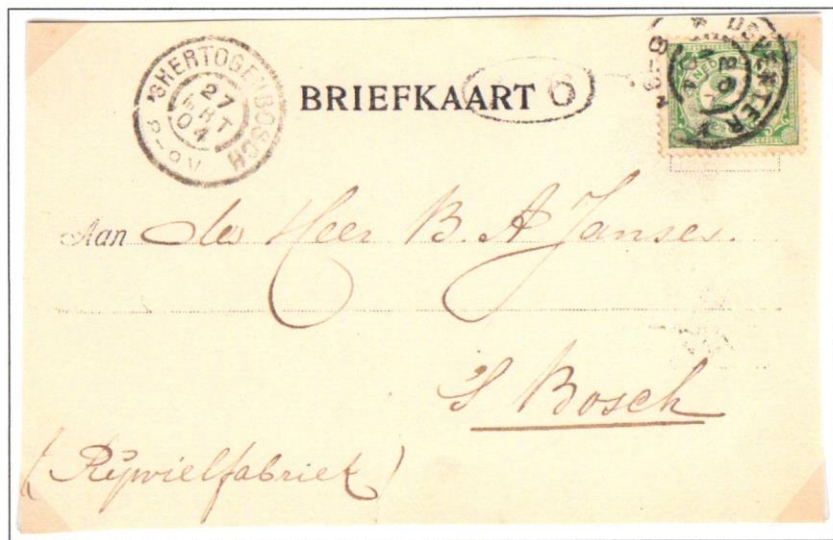 'SHERTOGENBOSCH
27
OKT
04
8-9V
BRIEFKAART 6
DEVENTER
Aan den Heer B. A Janses.
's Bosch
(Rijwielfabriek)